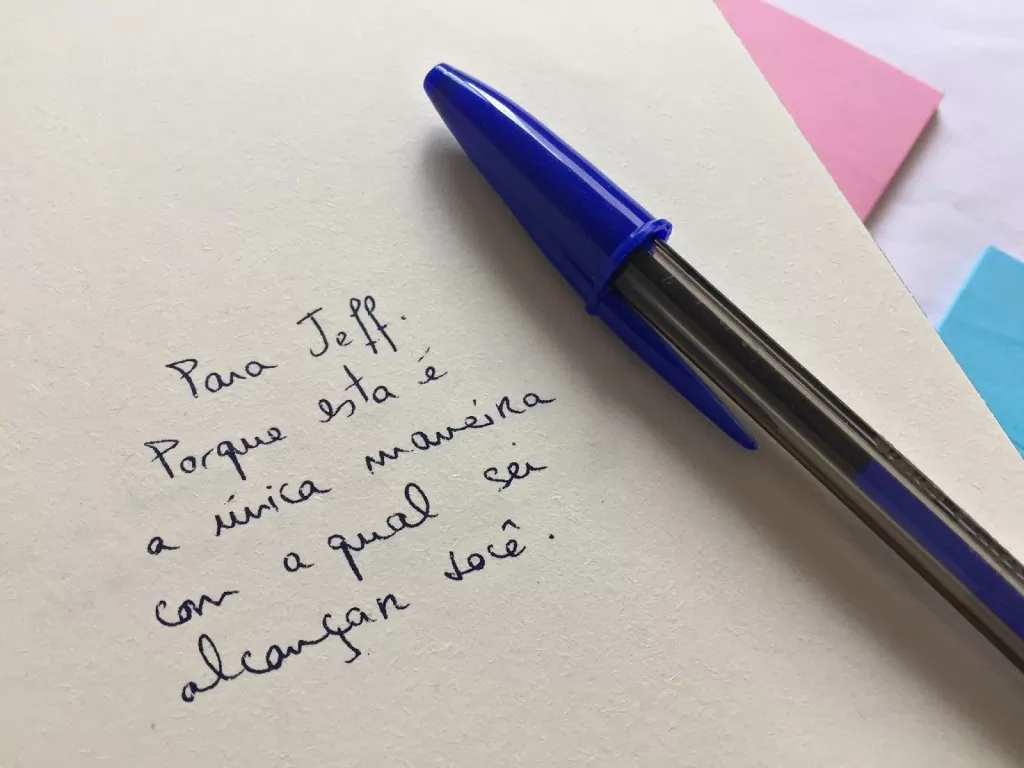 Para Jeff.
Porque esta é
a única maneira
com a qual sei
alcançar você.